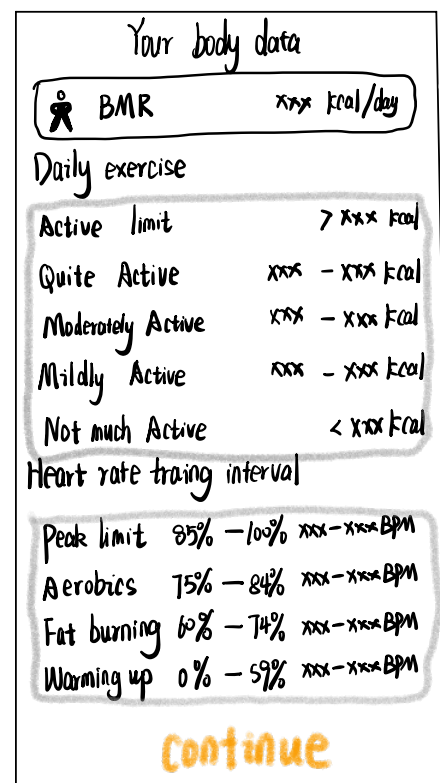 Your body data
BMR xxx kcal/day
Daily exercise
Active limit > xxx kcal
Quite Active xxx - xxx kcal
Moderately Active xxx - xxx kcal
Mildly Active xxx - xxx kcal
Not much Active < xxx kcal
Heart rate traing interval
Peak limit 85% - 100% xxx-xxx BPM
Aerobics 75% - 84% xxx-xxx BPM
Fat burning 60% - 74% xxx-xxx BPM
Warming up 0% - 59% xxx-xxx BPM
continue